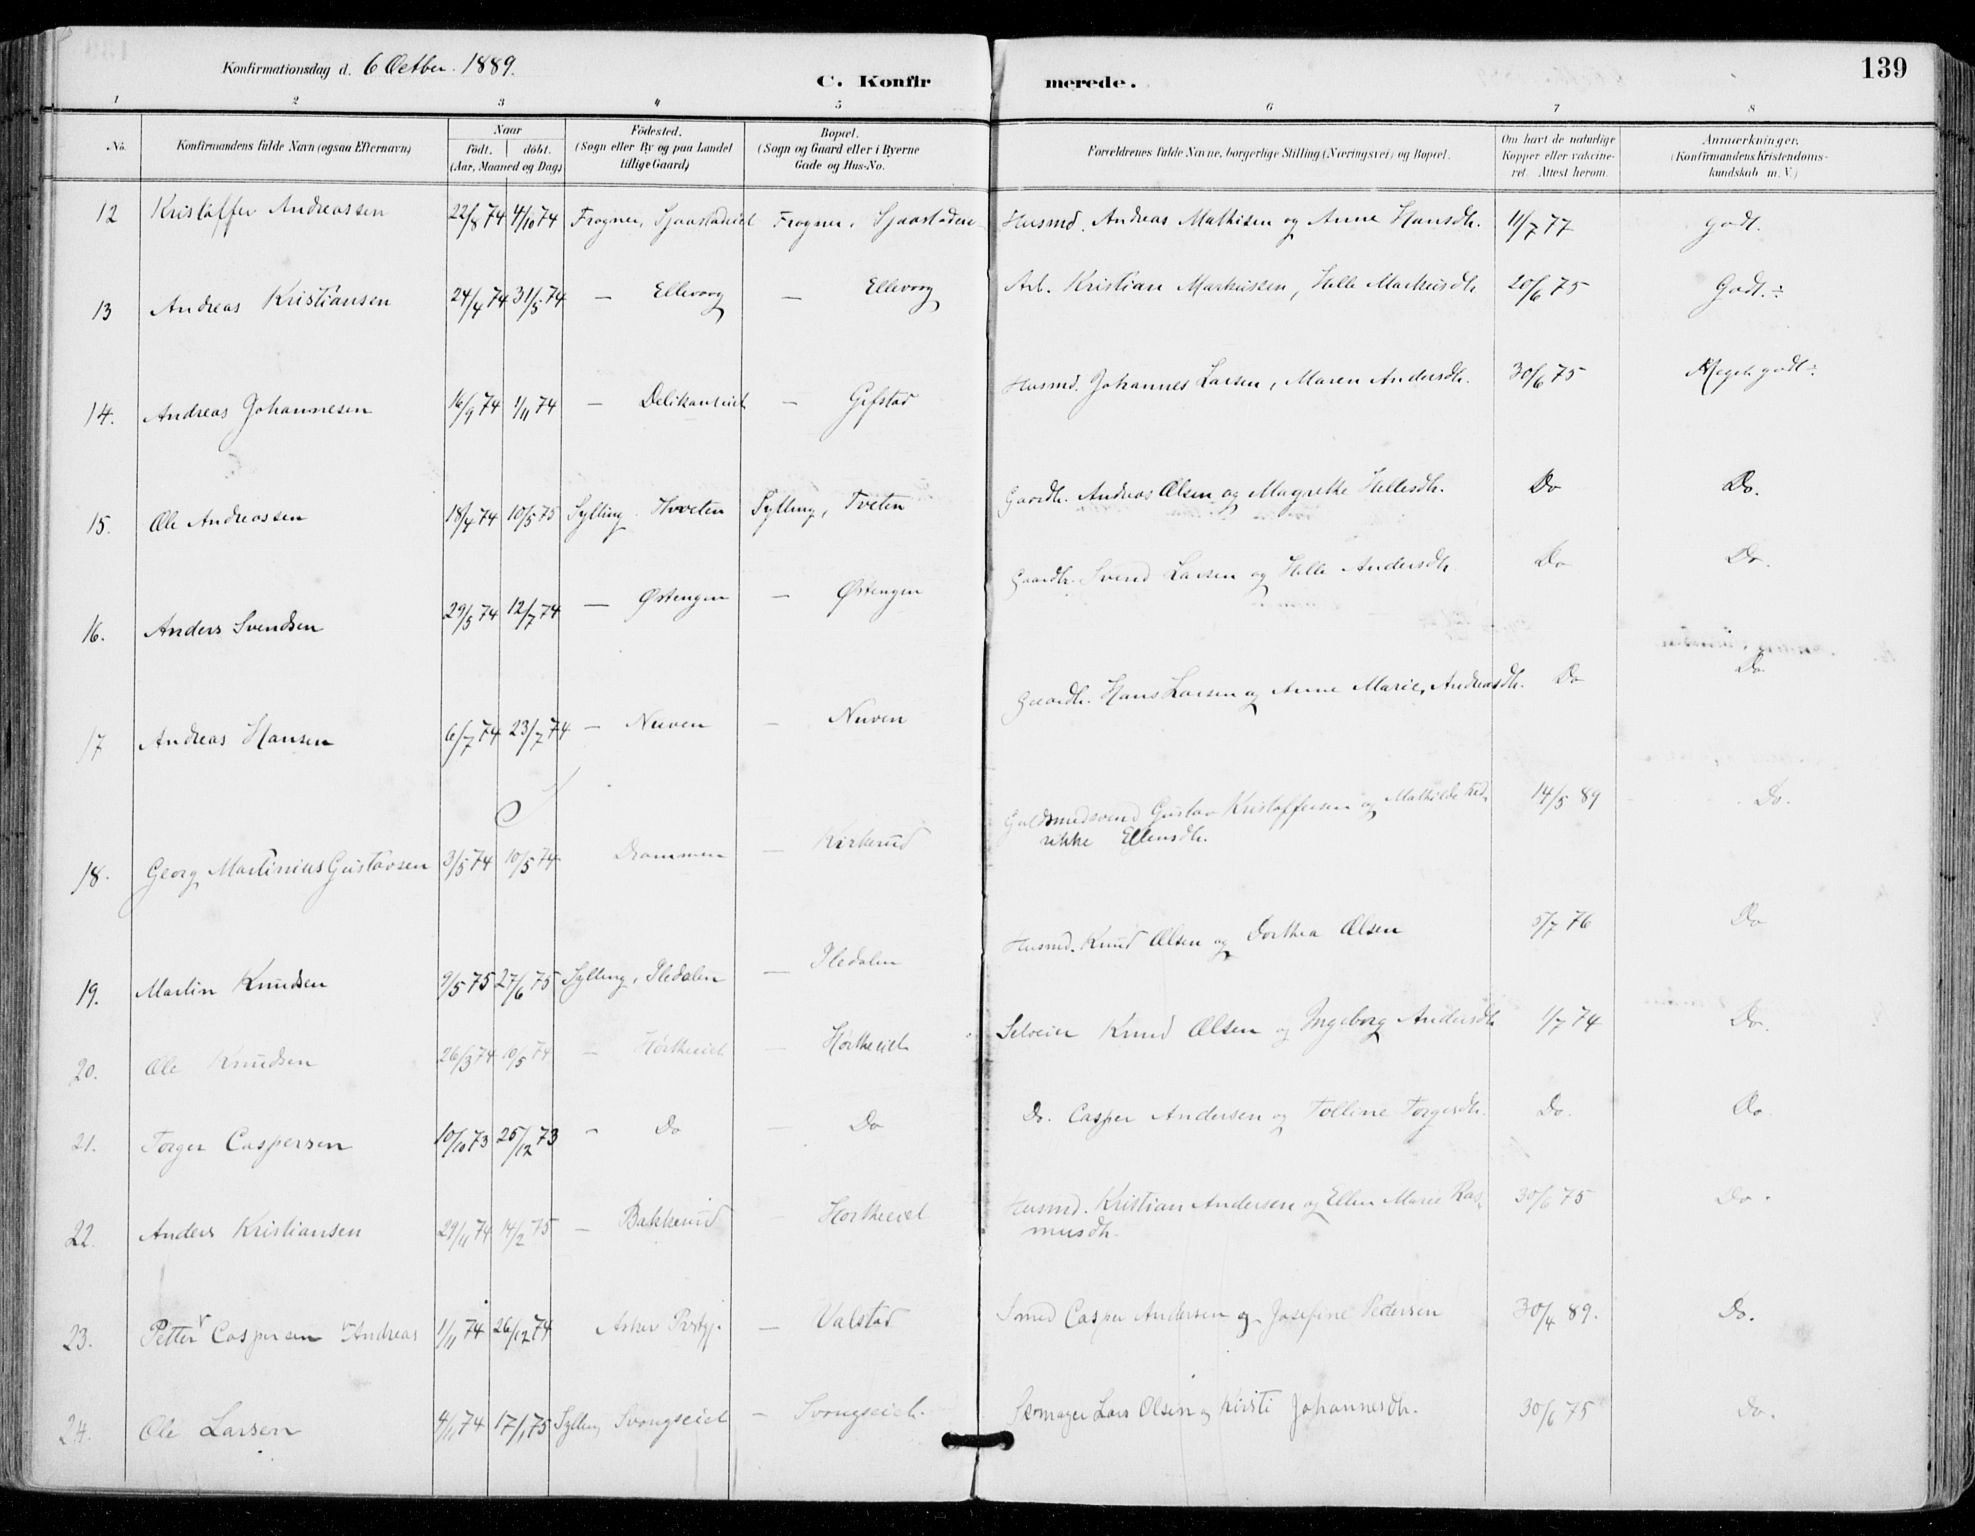 139
Konfirmationsdag d. 6 Octber. 1889.
C. Konfirmerede.
1 2 3 4 5 6 7 8
No. Konfirmandens fulde Navn (ogsaa Efternavn) Naar födt. döbt. (Aar, Maaned og Dag) Födested. (Sogn eller By og paa Landet tillige Gaard) Bopæl. (Sogn og Gaard eller i Byerne Gade og Hus-No. Forældrenes fulde Navne, borgerlige Stilling (Næringsvei) og Bopæl. Om havt de naturlige Kopper eller vaksineret. Attest herom. Anmærkninger. (Konfirmandens Kristendomskundskab m. V.)
12 Kristoffer Andreassen 22/8 74 4/10 74 Frogner, Sjaastadeiet Frogner, Sjaastadeie Husmd. Andreas Mathisen og Anne Hansdtr. 11/7 77 Godt.
13 Andreas Kristiansen 24/4 74 31/5 74 — Ellevorg — Ellevorg Arb. Kristian Markussen, Helle Markusdtr. 20/6 75 Godt. ÷
14. Andreas Johannesen 16/9 74 1/11 74 — — Gifstad Husmd. Johannes Larsen, Maren Andersdtr. 30/6 75 Meget godt ÷
15. Ole Andreassen 18/4 74 10/5 75 Sylling Hvveten Sylling, Tveten Gaardbr. Andreas Olsen og Magrethe Hellesdtr. Do Do.
16. Anders Svendsen 29/5 74 12/7 74 — Østengen — Østengen Gaardbr. Svend Larsen og Helle Andersdtr. Do Do.
17 Andreas Hansen 6/7 74 23/7 74 — Nuven — Nuven Gaardbr. Hans Larsen og Anne Marie Andreasdtr. Do Do
18. Georg Martinius Gustavsen 3/5 74 10/5 74 Drammen — Kirkerud Guldsmedsvend Gustav Kristoffersen og Mathilde Fredrikke Ellensdtr. 14/5 89 Do.
19. Martin Knudsen 9/5 75 27/6 75 Sylling, Pledalen — Pledalen Husmd. Knud Olsen og Dorthea Olsen 5/7 76 Do
20. Ole Knudsen 26/3 74 10/5 74 — Hörtheeiet — Hörtheeiet Selveier Knud Olsen og Ingeborg Andersdtr. 1/7 74 Do.
21. Torger Caspersen 10/10 73 25/12 73 — Do — Do Do. Casper Andersen og Tolline Torgersdtr. Do. Do
22. Anders Kristiansen 29/11 74 14/2 75 — Bakkerud — Hortheeiet Husmd. Kristian Andersen og Ellen Marie Rasmusdtr. 30/6 75 Do.
23. Petter Caspersen Andreas 1/11 74 26/12 74 Asker Prstgj. — Valstad Smed Casper Andersen og Josefine Pedersen 30/4 89. Do.
24. Ole Larsen 4/11 74 17/1 75 Sylling Svongseiet — Svongseiet. Skomager Lars Olsen og Kirsti Johannesdtr. 30/6 75 Do.